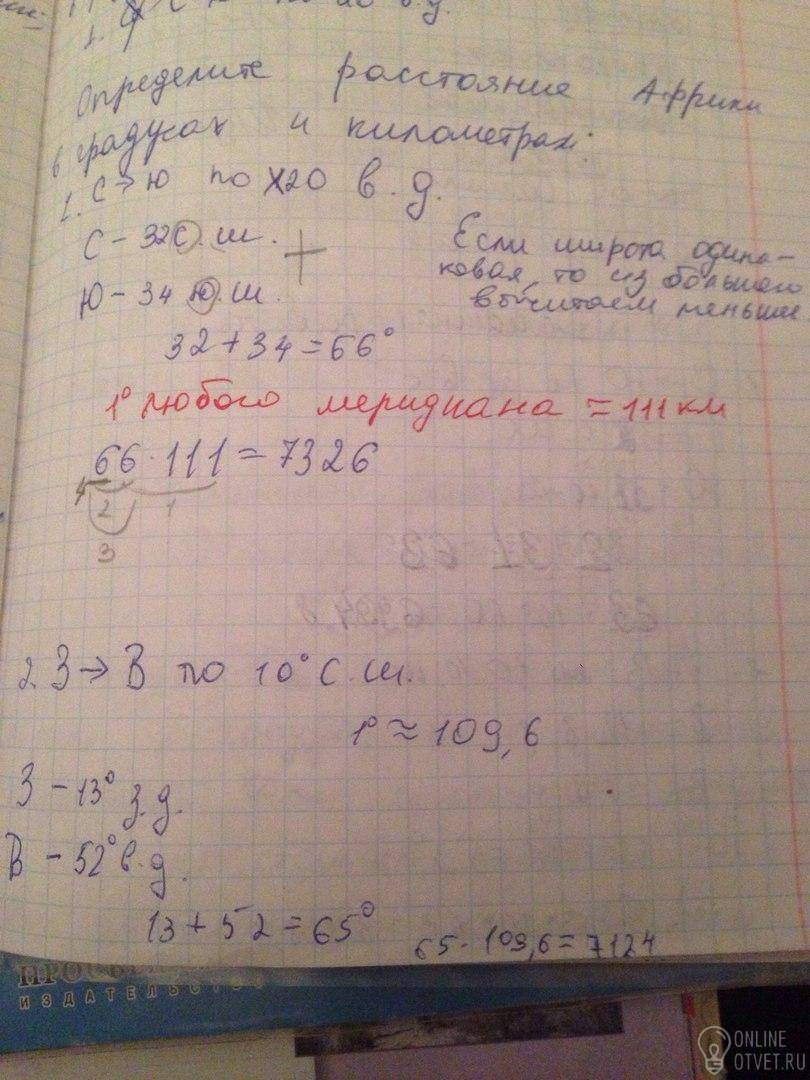 1.
по 20 в.д.
Определите расстояние Африки
в градусах и километрах:
1. С→Ю по 20 в.д.
С – 32 С.ш. +
Ю – 34 Ю.ш.
Если широта одина-
ковая, то из большого
вычитаем меньшее.
32+34=66°
1° любого меридиана = 111 км
66·111=7326
2 1
3
2. З→В по 10° С.ш.
1° ≈ 109,6
З – 13° з.д.
В – 52° в.д.
13+52=65°
65·109,6=7124
ПРОСВЕЩ
ИЗДАТЕЛЬСТВО
ONLINE
OTVET.RU